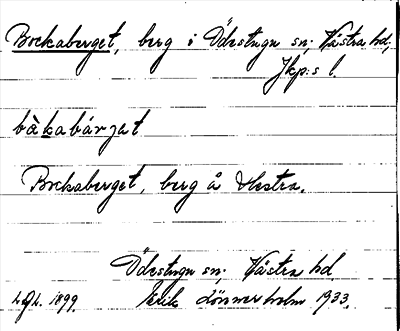 Bockaberget, berg i Ödestugu sn; Västra hd,
Jkp:s l.
bàkabárjat
Bockaberget, berg å Älestra.
Ödestugu sn; Västra hd
1899. Erik Lönnerholm 1933.